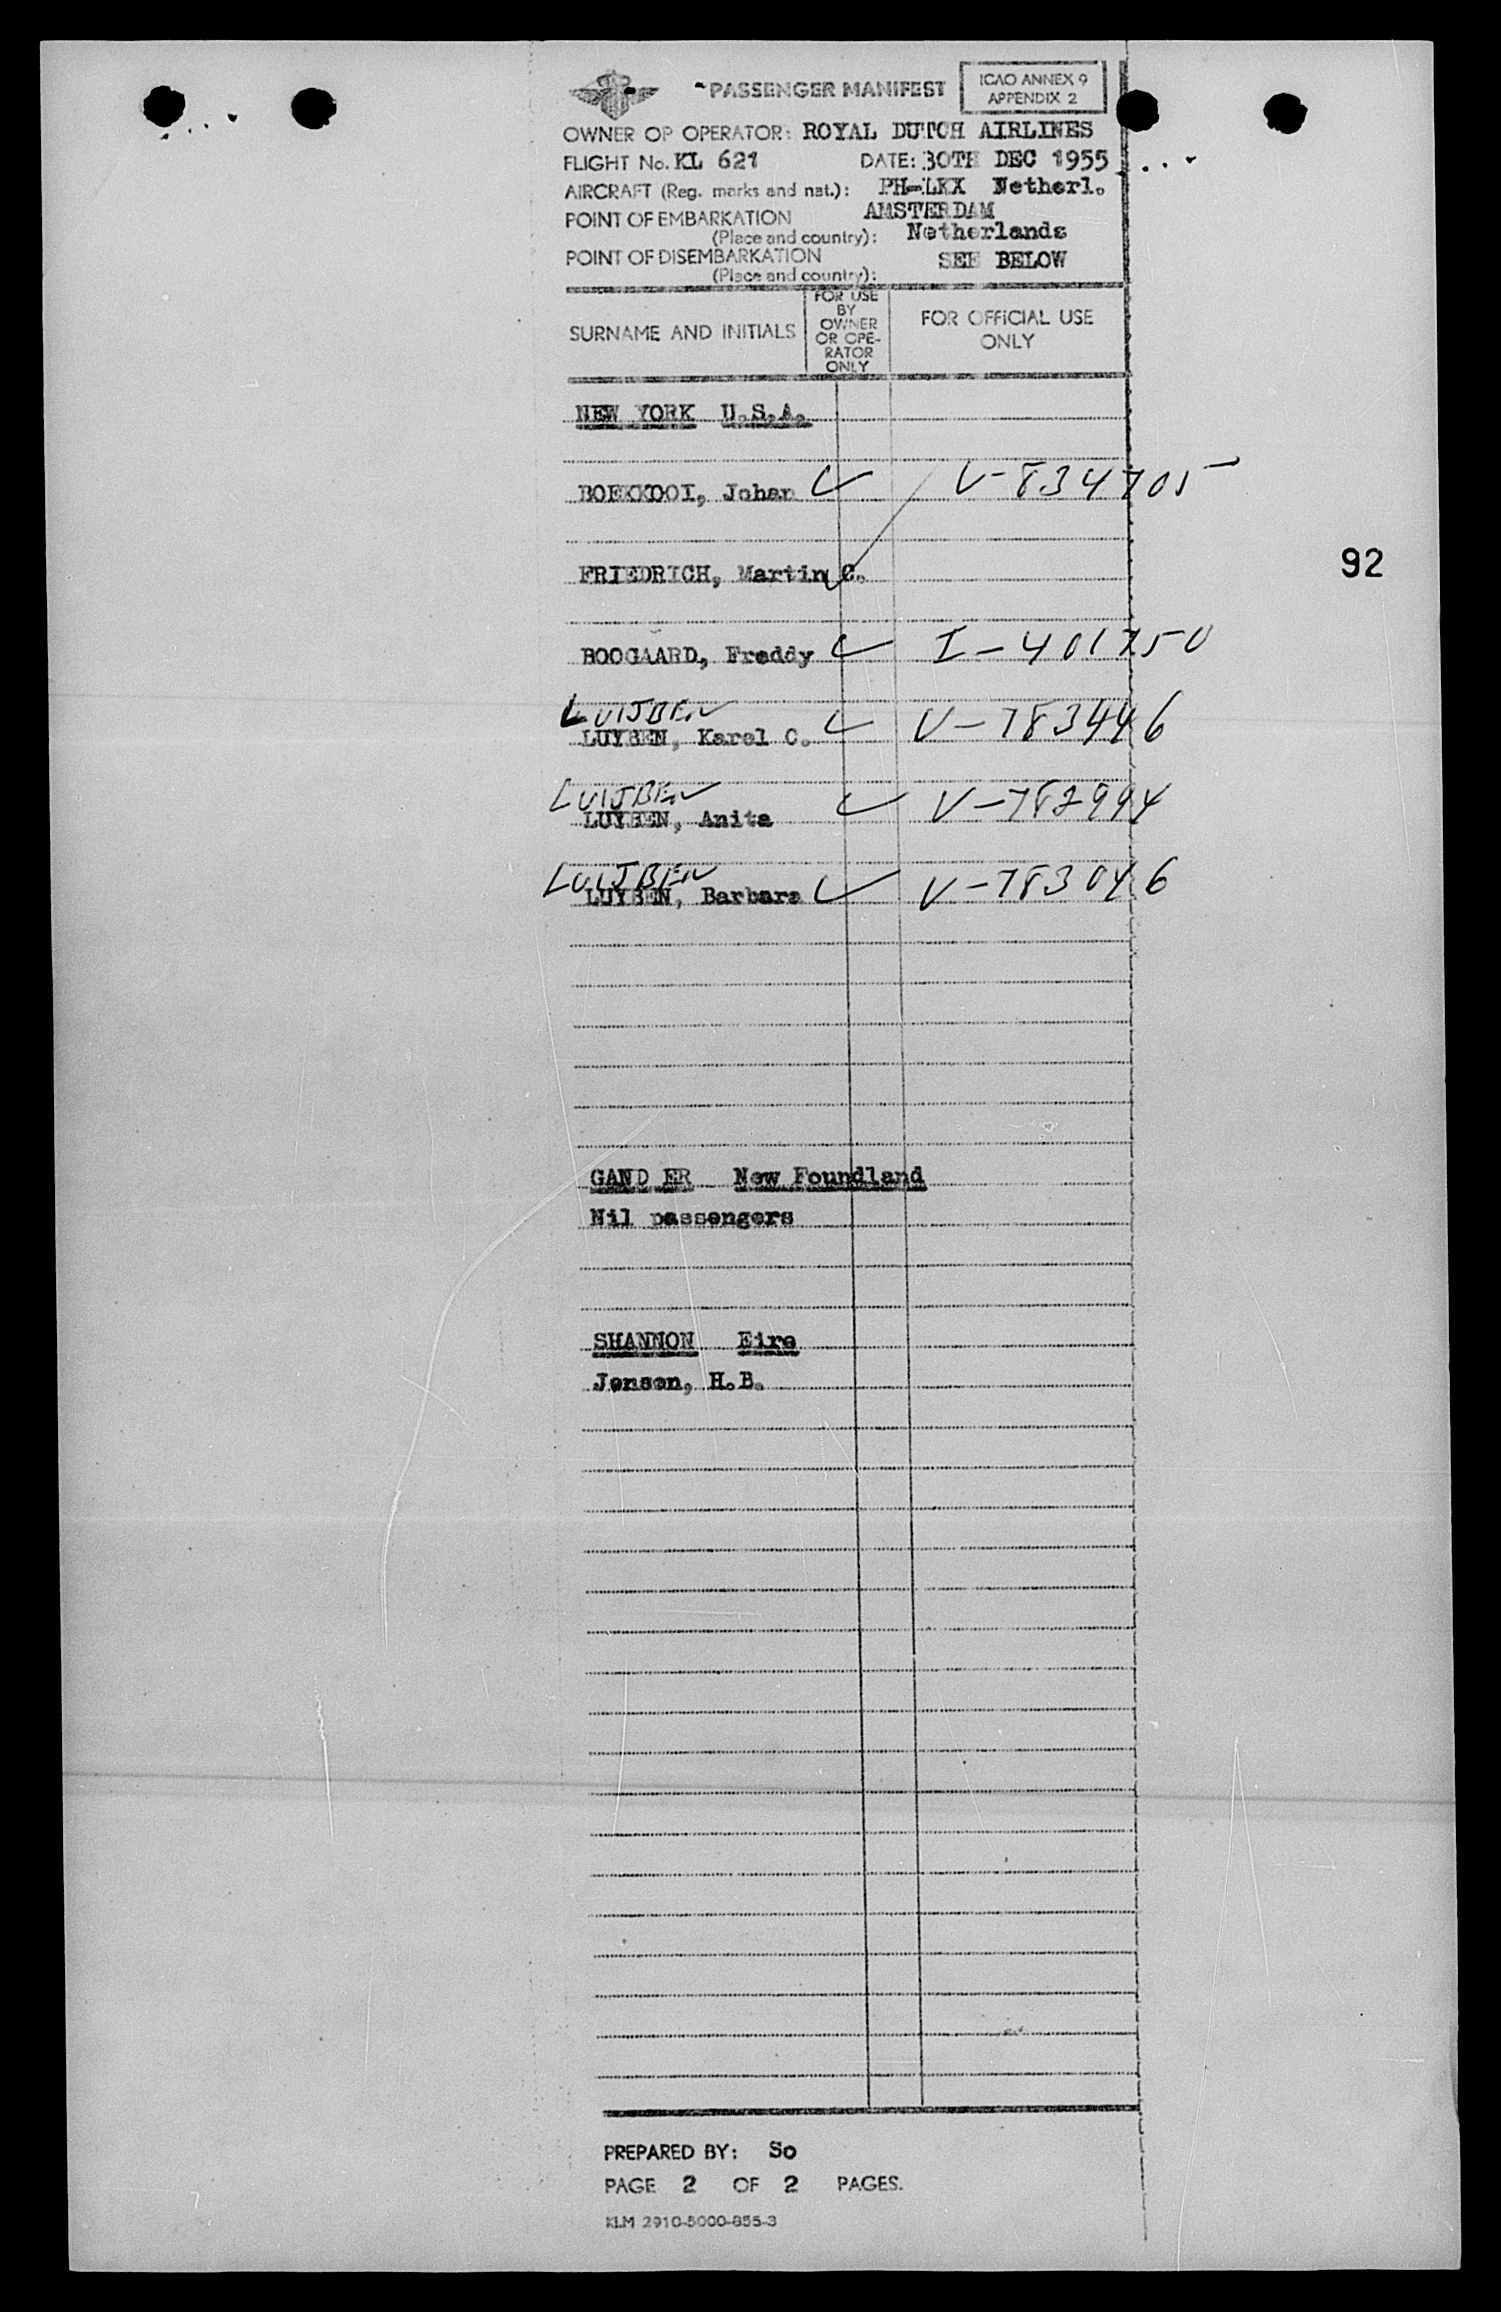 PASSENGER MANIFEST
ICAO ANNEX 9
APPENDIX 2
OWNER OP OPERATOR: ROYAL DUTCH AIRLINES
FLIGHT No. KL 621 DATE: 30TH DEC 1955
AIRCRAFT (Reg. marks and nat.): PH-LKX Netherl.
POINT OF EMBARKATION AMSTERDAM
(Place and country): Netherlands
POINT OF DISEMBARKATION SEE BELOW
(Place and country):
SURNAME AND INITIALS
FOR USE
BY
OWNER
OR OPE-
RATOR
ONLY
FOR OFFICIAL USE
ONLY
NEW YORK U.S.A.
BOEKKOOI, Johan V-834705
92
FRIEDRICH, Martin C.
BOOGAARD, Freddy I-401750
LUIJBEN
LUYBEN, Karel C. V-783446
LUIJBEN
LUYBEN, Anita V-782994
LUIJBEN
LUYBEN, Barbara V-783046
GAND ER New Foundland
Nil passengers
SHANNON Eire
Jensen, H.B.
PREPARED BY: So
PAGE 2 OF 2 PAGES.
KLM 2910-5000-855-3